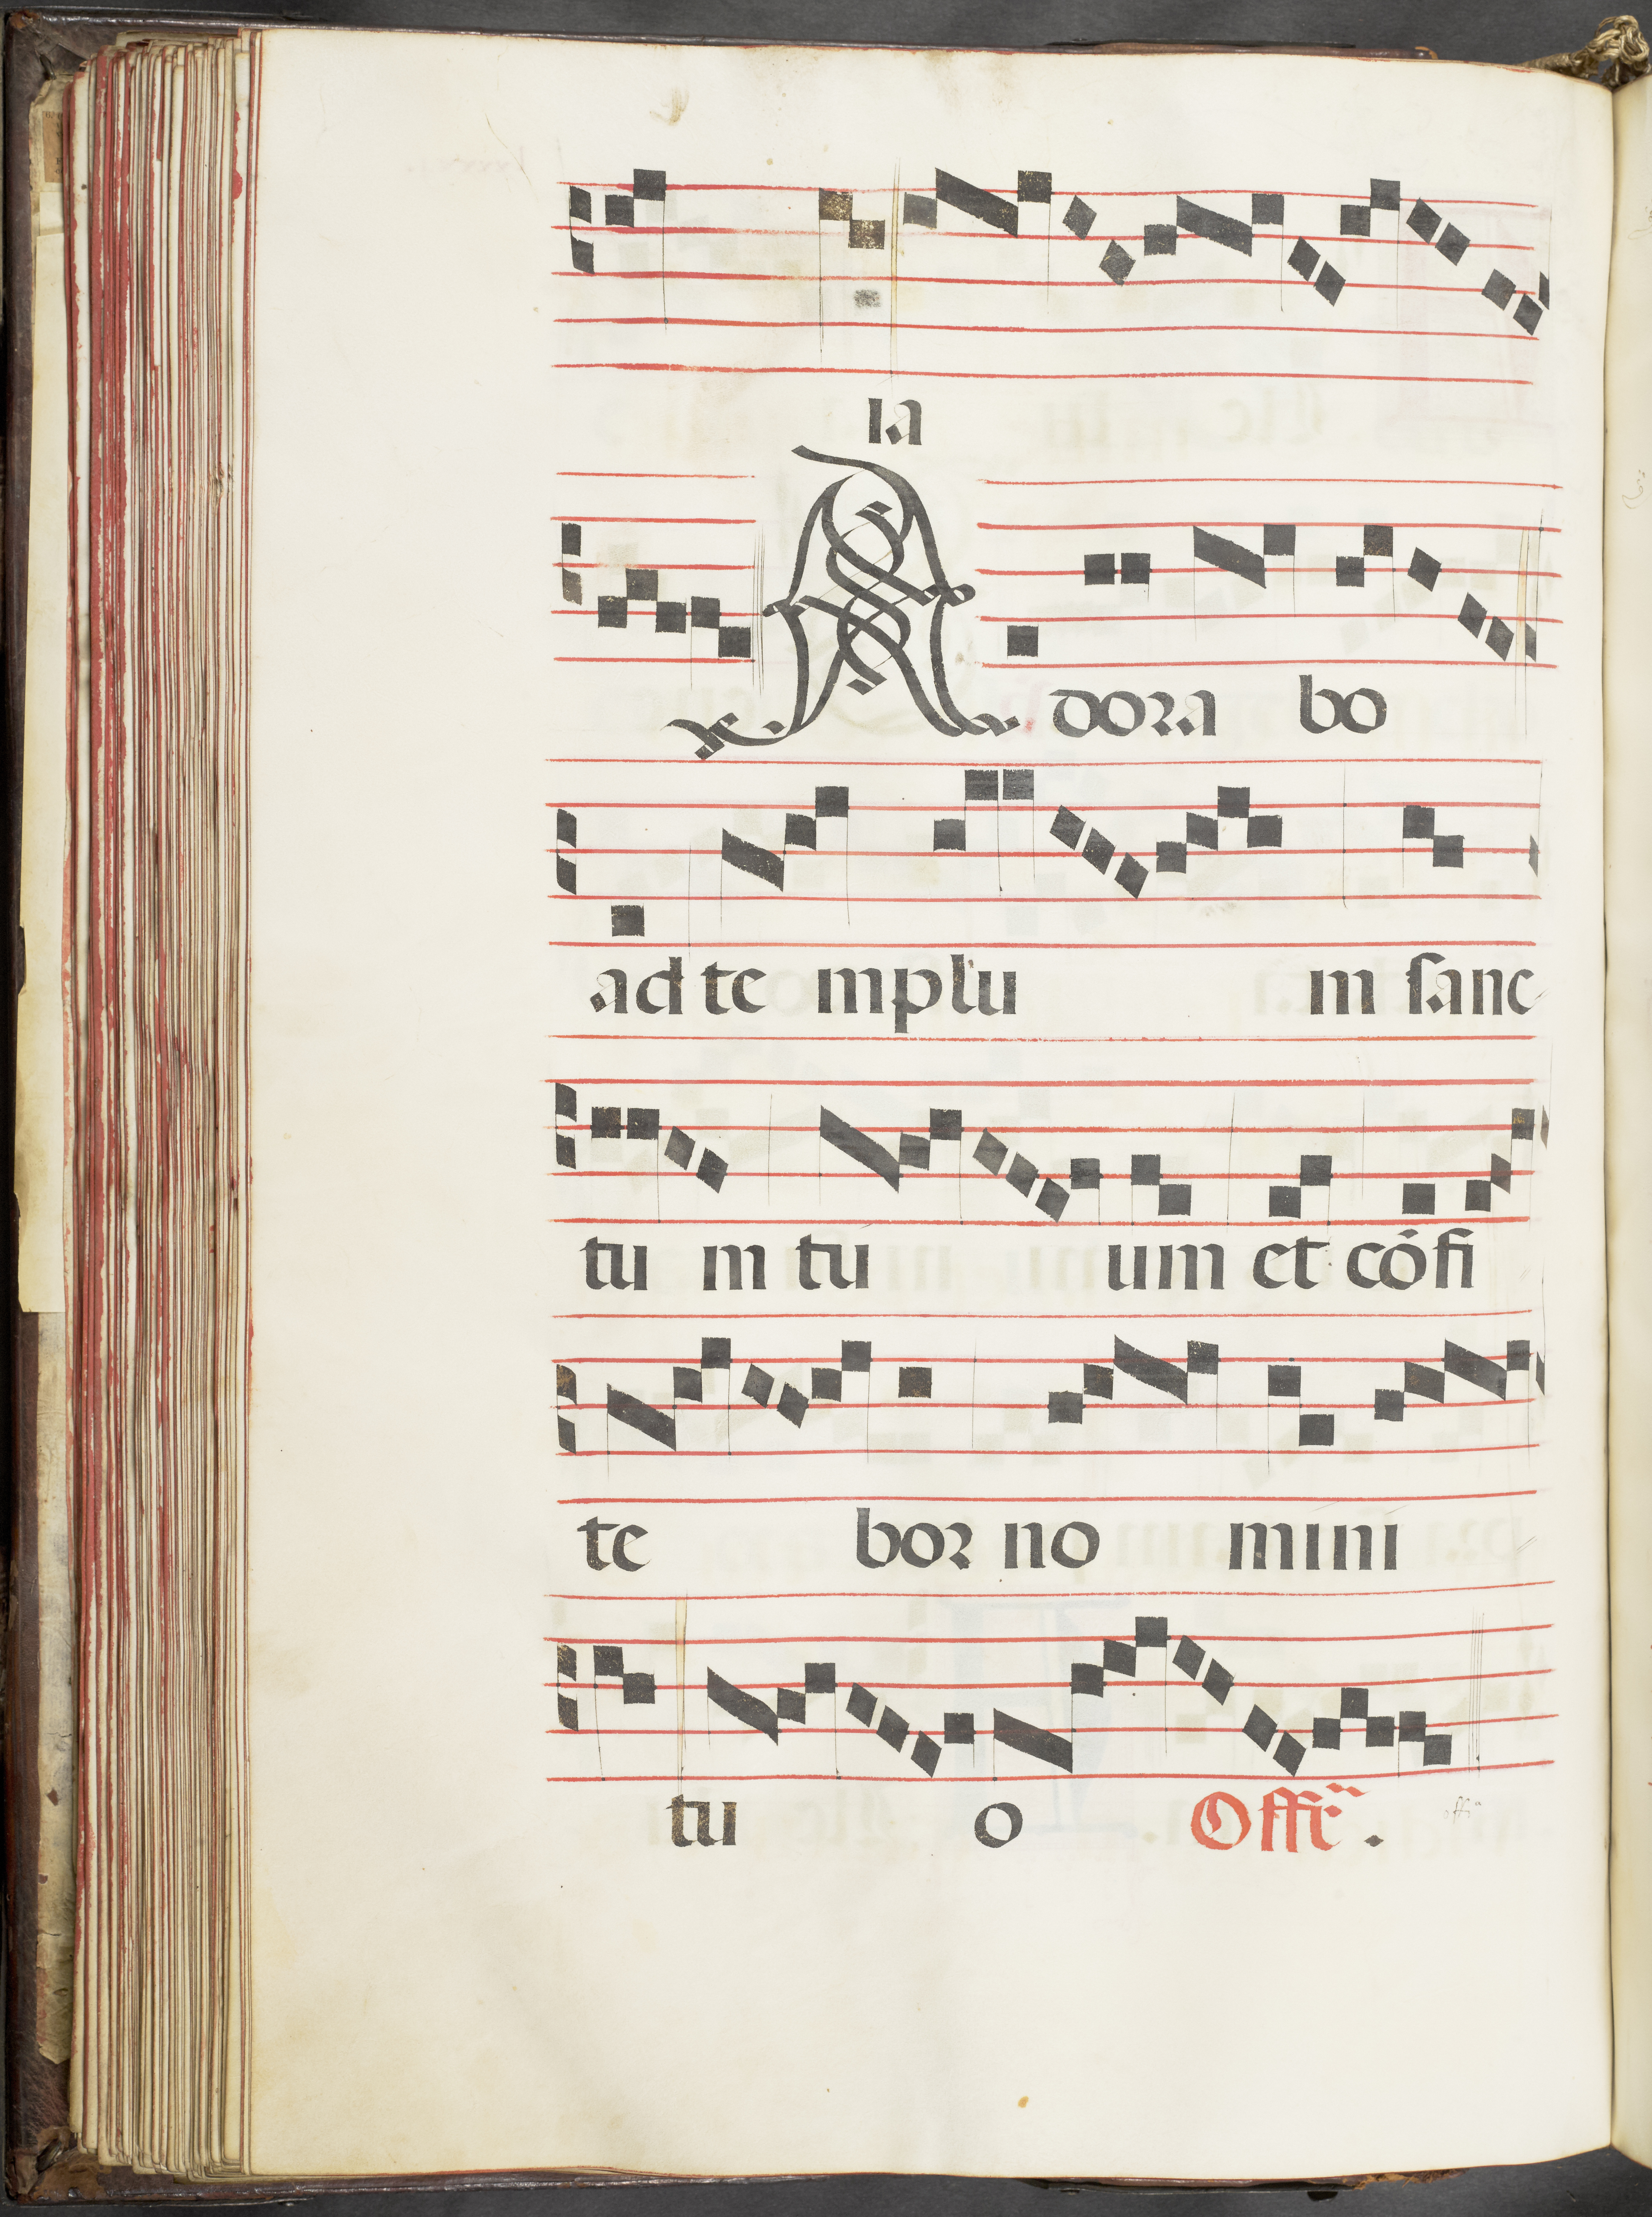 ia
Adora bo
ad te mplu m sanc
tu m tu um et cōfi
te bor no mini
tu o Offr̃. offᵃ